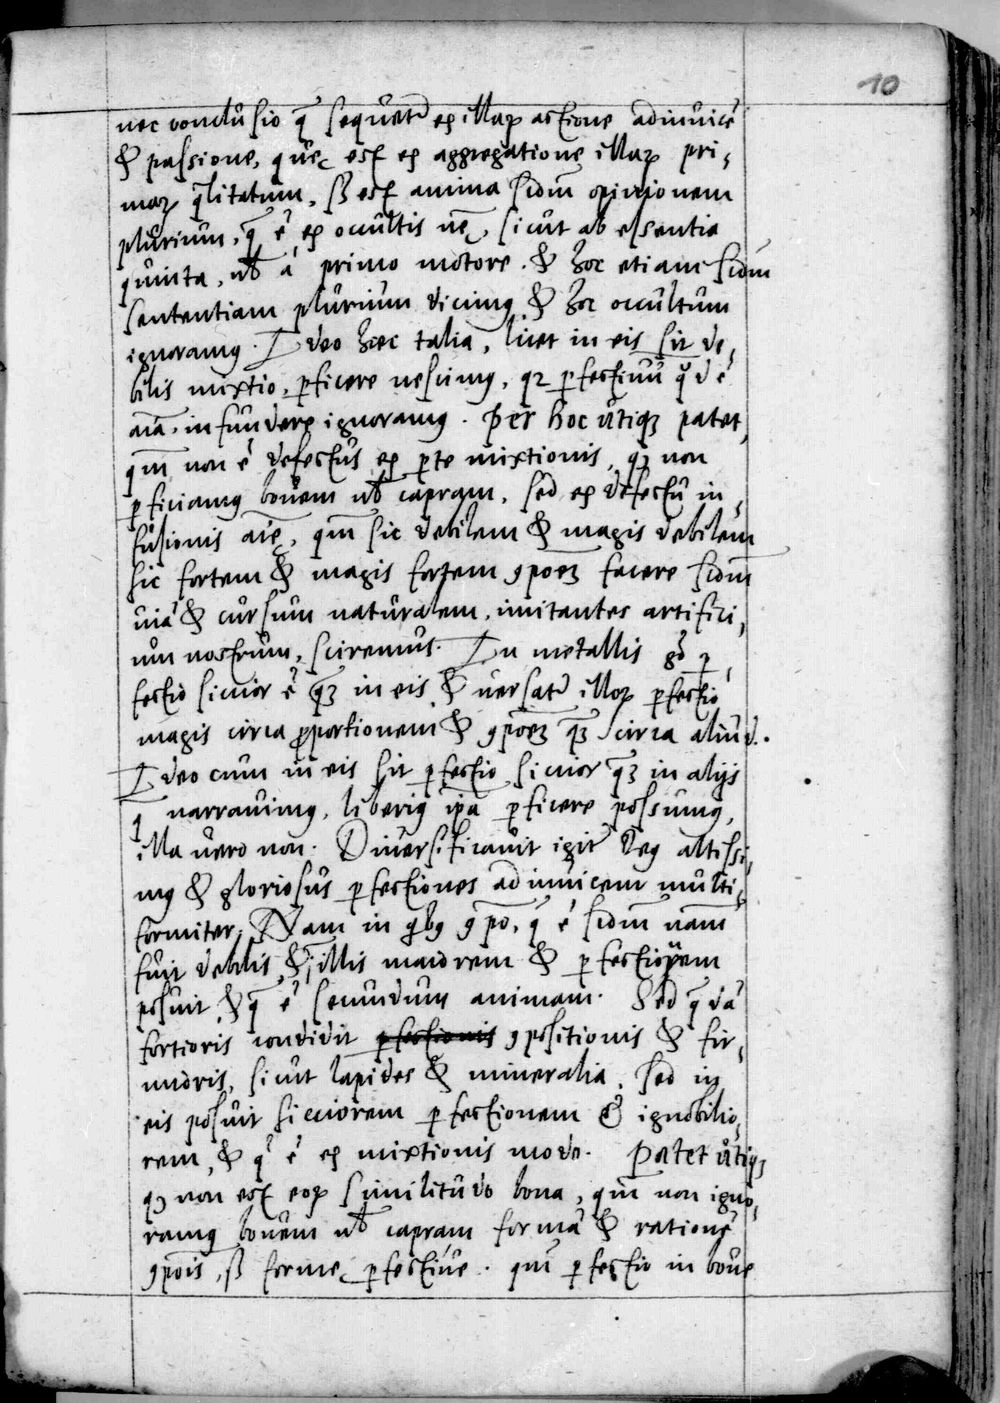 10
nec conclusio q̄ sequet᷑ ex illaꝝ actione adinuicē
& passione, quę est ex aggregatione illaꝝ pri-
maꝝ q̄litatum, sꝫ est anima scdm̄ opinionem
plurium, q̄ ē ex occultis nr̄ę, sicut ab essentia
quinta, ul̄ à primo motore. & hoc etiam scdm̄
sententiam plurium dicimꝰ & hoc occultum
ignoramꝰ. Ideo hæc talia, licet in eis sit de-
bilis mixtio, ꝑficere nescimꝰ, qꝛ ꝑfectiuū qd̄ ē
aīa, infundere ignoramꝰ. Per hoc utiqꝫ patet,
qm̄ non ē defectus ex ꝑte mixtionis, qꝫ non
ꝑficiamꝰ bouem ul̄ capram, sed ex defectu in-
fusionis aīę, qm̄ sic debilem & magis debilem
sic fortem & magis fortem ꝯpoēm facere scdm̄
uiā & cursum naturalem, imitantes artifici-
um nostrum, sciremus. In metallis gͦ ꝑ-
fectio sicuior ē qꝫ in eis & uersat᷑ illoꝝ ꝑfectio
magis circa ꝓportionem & ꝯpoēm qꝫ circa aliud.
Ideo cum in eis sit ꝑfectio sicuior qꝫ in alijs
q̄ narrauimꝰ, liberiꝰ ipā ꝑficere possumꝰ,
illa uero non. Diuersificauit igit᷑ Deꝰ altissi-
mꝰ & gloriosus ꝑfectiones adinuicem multi-
formiter. Nam in qͥbꝰ ꝯpō, q̄ ē scdm̄ nam̄
fuit debilis, & illis maiorem & ꝑfectionem
posuit, & q̄ ē secundum animam. Sed q̄dā
fortioris condidit ꝑfectionis ꝯpositionis & fir-
mioris, sicut lapides & mineralia. Sed in
eis posuit sicciorem ꝑfectionem & ignobilio-
rem, & q̄ ē ex mixtionis modo. Patet utiqꝫ
qꝫ non est eoꝝ similitudo bona, qm̄ non igno-
ramꝰ bouem ul̄ capram formā & rationē
ꝯpōis, sꝫ formę ꝑfectiuę. qm̄ ꝑfectio in boue